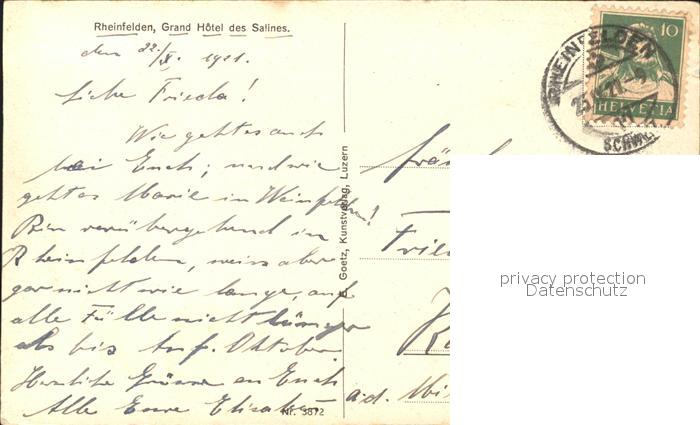 Rheinfelden, Grand Hôtel des Salines.
den 22./IX. 1921.
Liebe Frieda!
Wie geht es auch
bei Euch; und wie
geht es Marie in Weinfelden!
Bin vorübergehend in
Rheinfelden, weiss aber
gar nicht wie lange, auf
alle Fälle nicht länger
als bis Anf. Oktober.
Herzliche Grüsse an Euch
Alle Eure Elisabeth
Nr. 3872
Goetz, Kunstverlag, Luzern
RHEINFELDEN
10
HELVETIA
Fräu
Frie
a.d.
privacy protection
Datenschutz